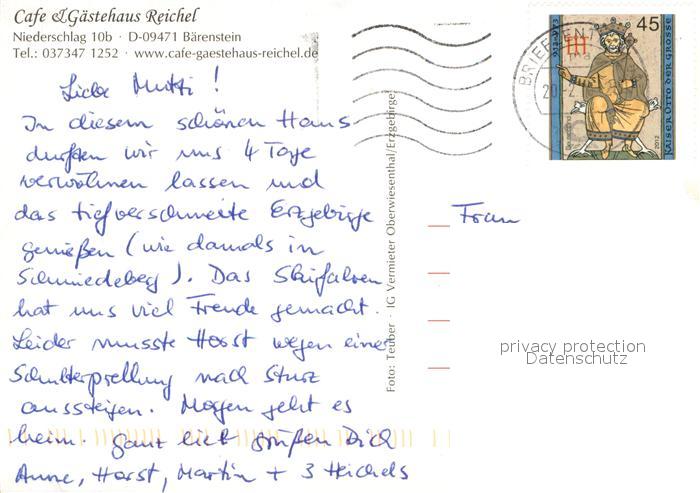 Cafe & Gästehaus Reichel
Niederschlag 10b · D-09471 Bärenstein
Tel.: 037347 1252 · www.cafe-gaestehaus-reichel.de
Liebe Mutti !
In diesem schönen Haus
durften wir uns 4 Tage
verwöhnen lassen und
das tiefverschneite Erzgebirge
genießen (wie damals in
Schmiedeberg). Das Skifahren
hat uns viel Freude gemacht.
Leider musste Horst wegen einer
Schulterprellung nach Sturz
aussteigen. Morgen geht es
heim. Ganz lieb grüßen Dich
Anne, Horst, Martin + 3 Heichels
Foto: Teuber · IG Vermieter Oberwiesenthal/Erzgebirge
BRIEFZENT
45
912-973
KAISER OTTO DER GROSSE
Deutschland
2012
Frau
privacy protection
Datenschutz